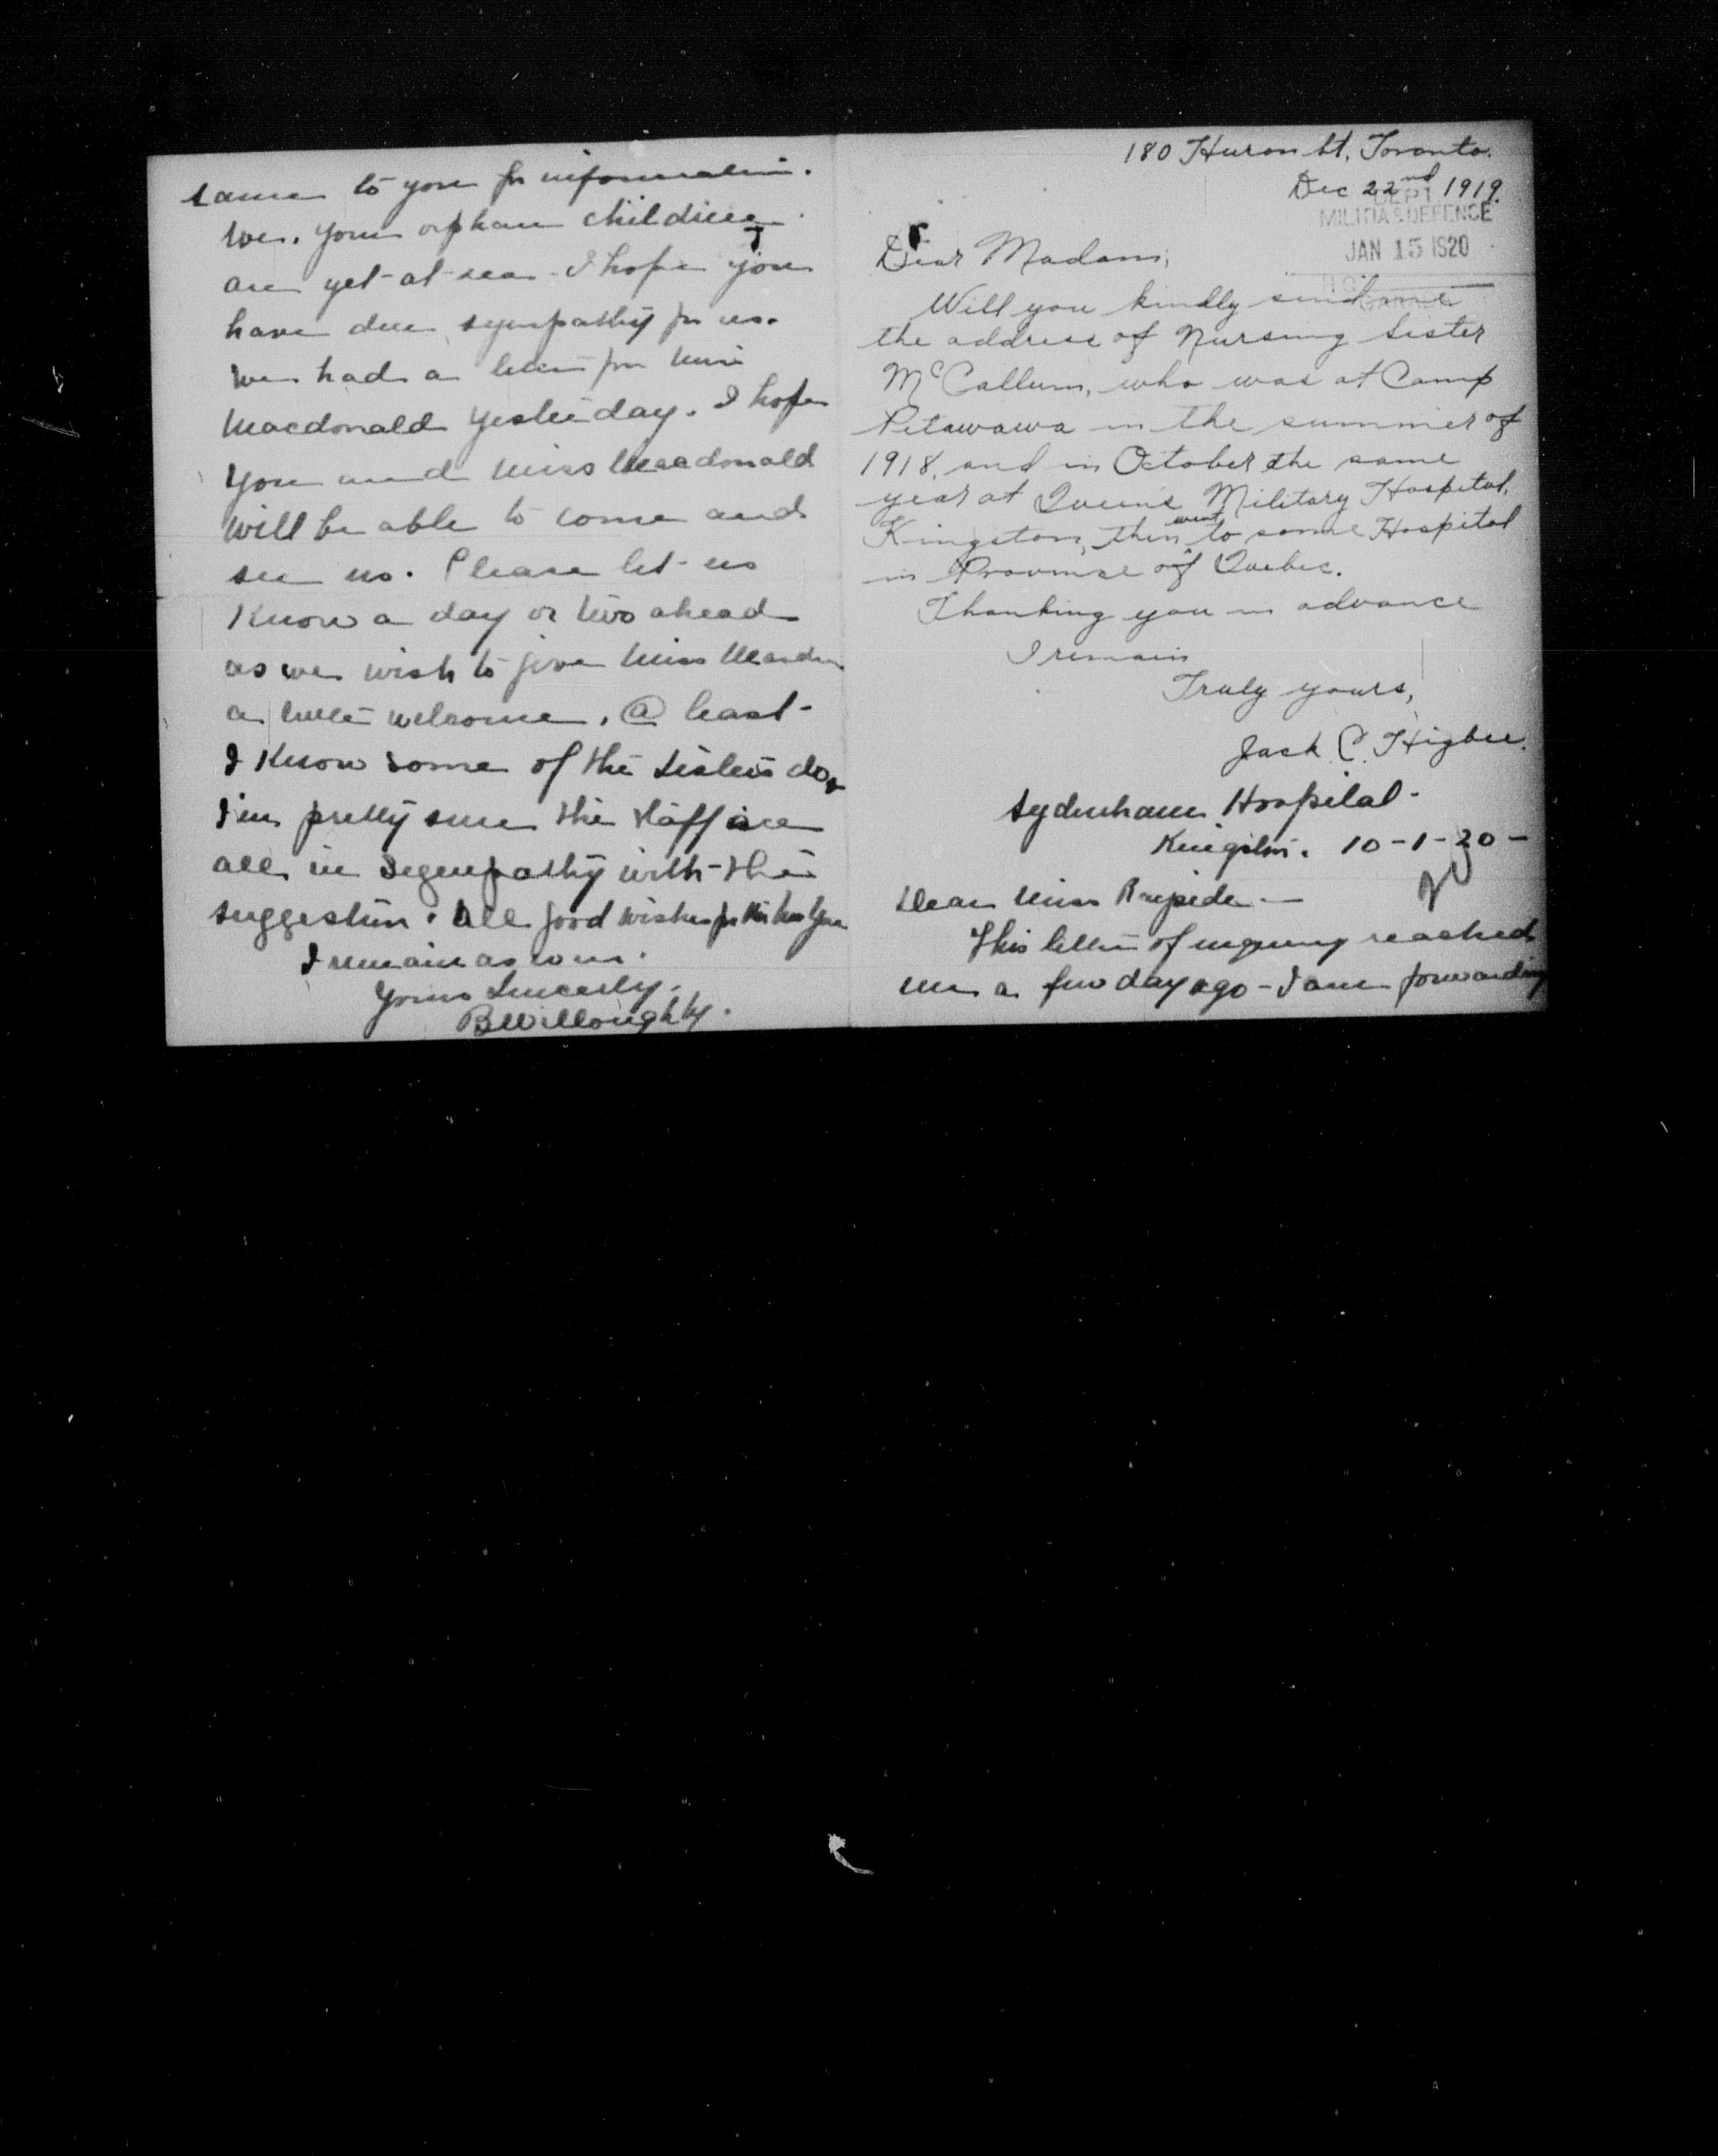 180 Huron St, Toronto.
Dec 22nd 1919.
DEPT
MILITIA & DEFENCE
JAN 15 1920
Dear Madam,
Will you kindly send me
the address of Nursing Sister
McCallum, who was at Camp
Petawawa in the summer of
1918, and in October the same
year at Queens Military Hospital,
Kingston, then went to some Hospital
in Province of Quebec.
Thanking you in advance
I remain
Truly yours,
Jack C. Higbee.
Sydenham Hospital -
Kingston. 10-1-20 -
Dear Miss
This letter of inquiry reached
me a few day ago - I am forwarding
same to you for information.
We, your orphan children
are yet at sea - I hope you
have due sympathy for us.
We had a letter from Miss
Macdonald yesterday. I hope
you and Miss Macdonald
will be able to come and
see us. Please let us
know a day or two ahead
as we wish to give Miss
a welcome. @ least -
I know some of the Sisters do,
I'm pretty sure the staff are
all in sympathy with the
suggestion. All good wishes for the New Year
I remain as ever.
Yours Sincerely.
B Willoughby.